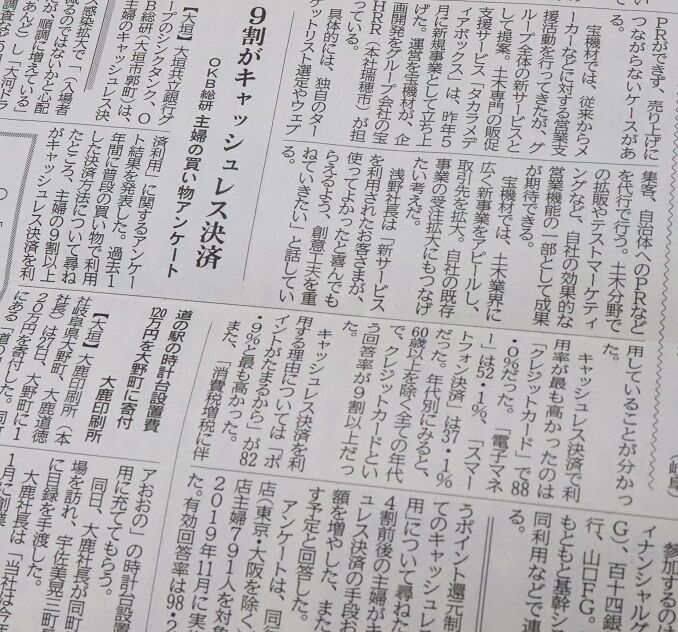 PRができず、売り上げに
つながらないケースがあ
る。
宝機材では、従来からメ
ーカーなどに対する営業支
援活動を行ってきたが、グ
ループ全体の新サービスと
して提案。土木専門の販促
支援サービス「タカラメデ
ィアボックス」は、昨年5
月に新規事業として立ち上
げた。運営を宝機材が、企
画開発をグループ会社の宝
HRR(本社瑞穂市)が担
っている。
具体的には、独自のター
ゲットリスト選定やウェブ
集客、自治体へのPRなど
を代行で行う。土木分野で
の拡販やテストマーケティ
ングなど、自社の効果的な
営業機能の一部として成果
が期待できる。
宝機材では、土木業界に
広く新事業をアピールし、
取引先を拡大。自社の既存
事業の受注拡大にもつなげ
たい考えだ。
浅野社長は「新サービス
を利用されたお客さまが、
使ってよかったと喜んでも
らえるよう、創意工夫を重
ねていきたい」と話してい
る。
9割がキャッシュレス決済
OKB総研 主婦の買い物アンケート
【大垣】大垣共立銀行グ
ープのシンクタンク、O
B総研(大垣市郭町)は、
主婦のキャッシュレス決
済利用」に関するアンケー
ト結果を発表した。過去1
年間に普段の買い物で利用
した決済方法について尋ね
たところ、主婦の9割以上
がキャッシュレス決済を利
用していることが分かっ
た。
キャッシュレス決済で利
用率が最も高かったのは
「クレジットカード」で88
・0%だった。「電子マネ
ー」は52・1%、「スマー
トフォン決済」は37・1%
だった。年代別にみると、
60歳以上を除く全ての年代
で、クレジットカードとい
う回答率が9割以上だっ
た。
キャッシュレス決済を利
用する理由については「ポ
イントがたまるから」が82
・9%と最も高かった。
また、「消費税増税に伴
うポイント還元制
てのキャッシュレ
用」について尋ねた
4割前後の主婦がキ
ュレス決済の手段お
額を増やした、また
す予定と回答した。
アンケートは、同行
店(東京・大阪を除く)
店主婦791人を対象
2019年11月に実
た。有効回答率は98・2
道の駅の時計台設置費
120万円を大野町に寄付
大鹿印刷所
【大垣】大鹿印刷所(本
社岐阜県大野町、大鹿道徳
社長)は27日、大野町に1
20万円を寄付した。同町
にある「道の
アおおの」の時計台設置
用に充ててもらう。
同日、大鹿社長が同町
場を訪れ、宇佐美晃三町
に目録を手渡した。
大鹿社長は「当社は今年
1月に創業
(岐阜)
参加するのは
ィナンシャルグ
G)、百十四銀
行、山口FG。
もともと基幹シ
同利用などで連
る。
感染拡大で「(入場者
減るのではないかと心配
が、順調に増えている」